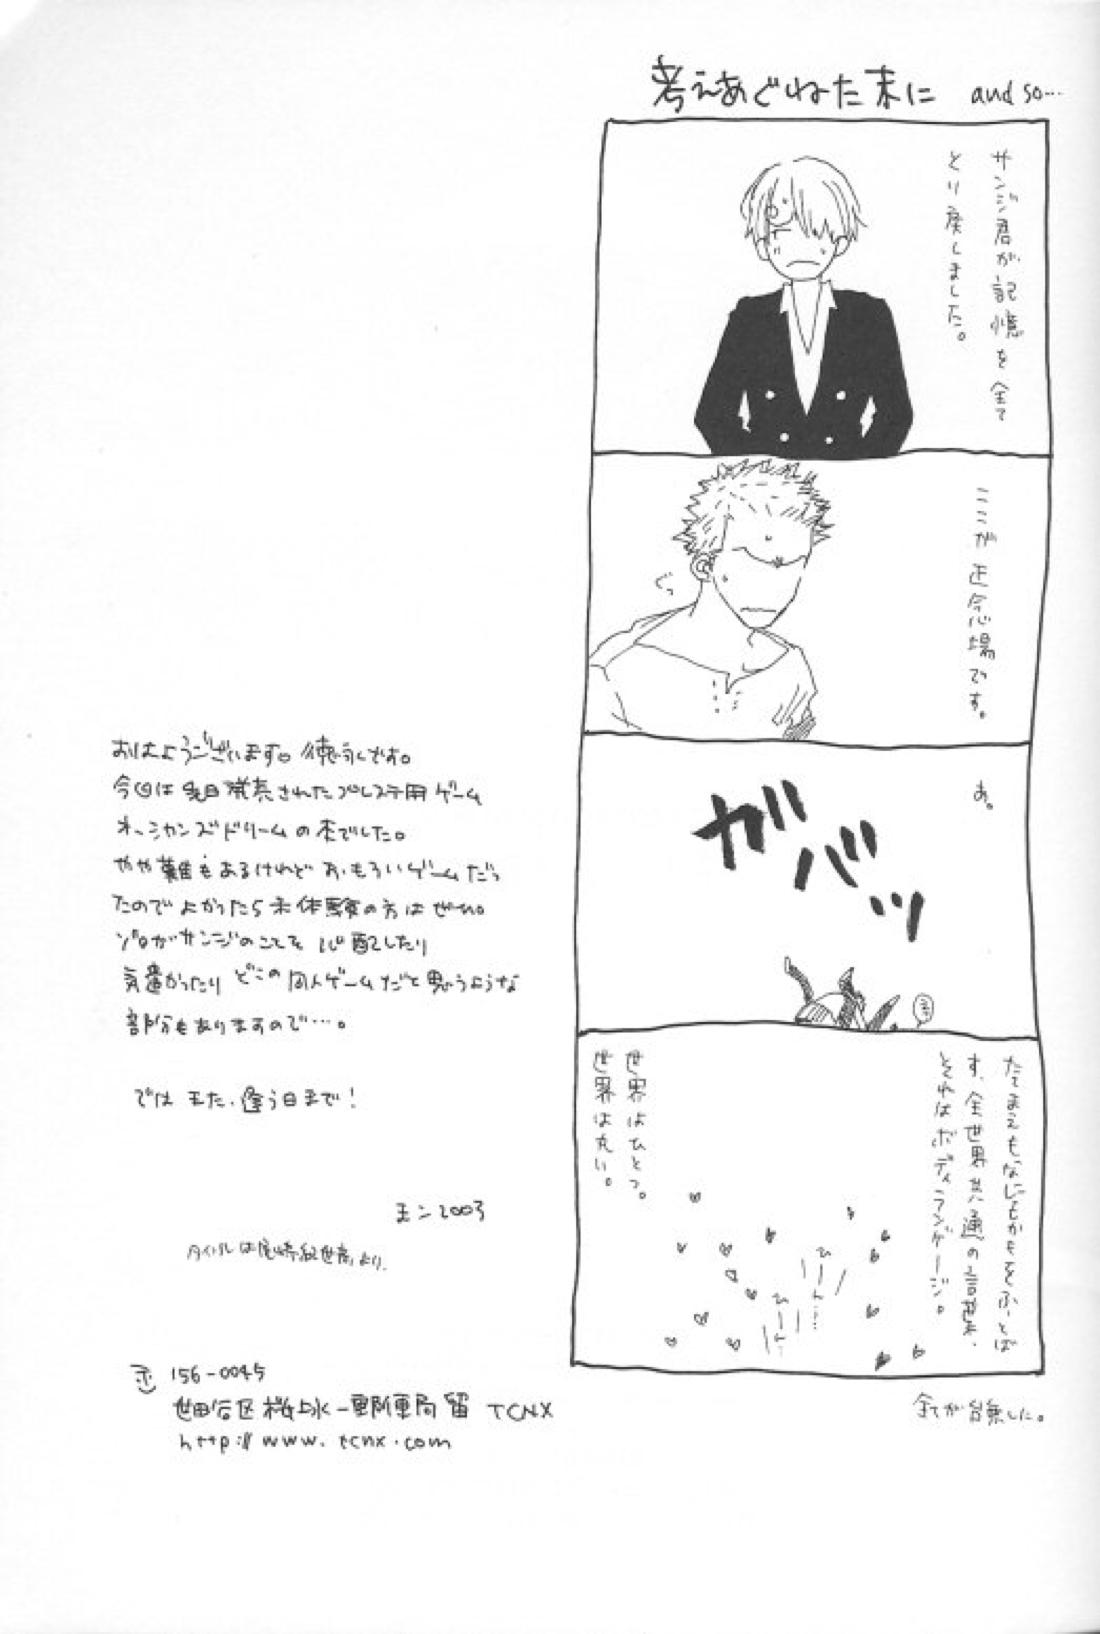 考えあぐねた末に and so…
サンジ君が記憶を全て
とり戻しました。
ここが正念場です。
ぐっ
あ。
ガバッ
たてまえもなにもかもをふっとば
す、全世界共通の言葉、
それはボディランゲージ。
世界はひとつ。
世界は丸い。
ひーん…
ひーん…
全てが台無した。
おはようございます。徳永です。
今回は先日発売されたプレステ用ゲーム
オーシャンズドリームの本でした。
やや難もあるけれどおもろいゲームだっ
たのでよかったら未体験の方はぜひ。
ゾロがサンジのことを心配したり
気遣かったりどこの同人ゲームだと思うような
部分もありますので…。
では また、逢う日まで!
モン2003
タイトルは尾崎紀世彦より。
〒 156-0045
世田谷区桜上水一郵便局留 TCNX
http://www.tcnx.com